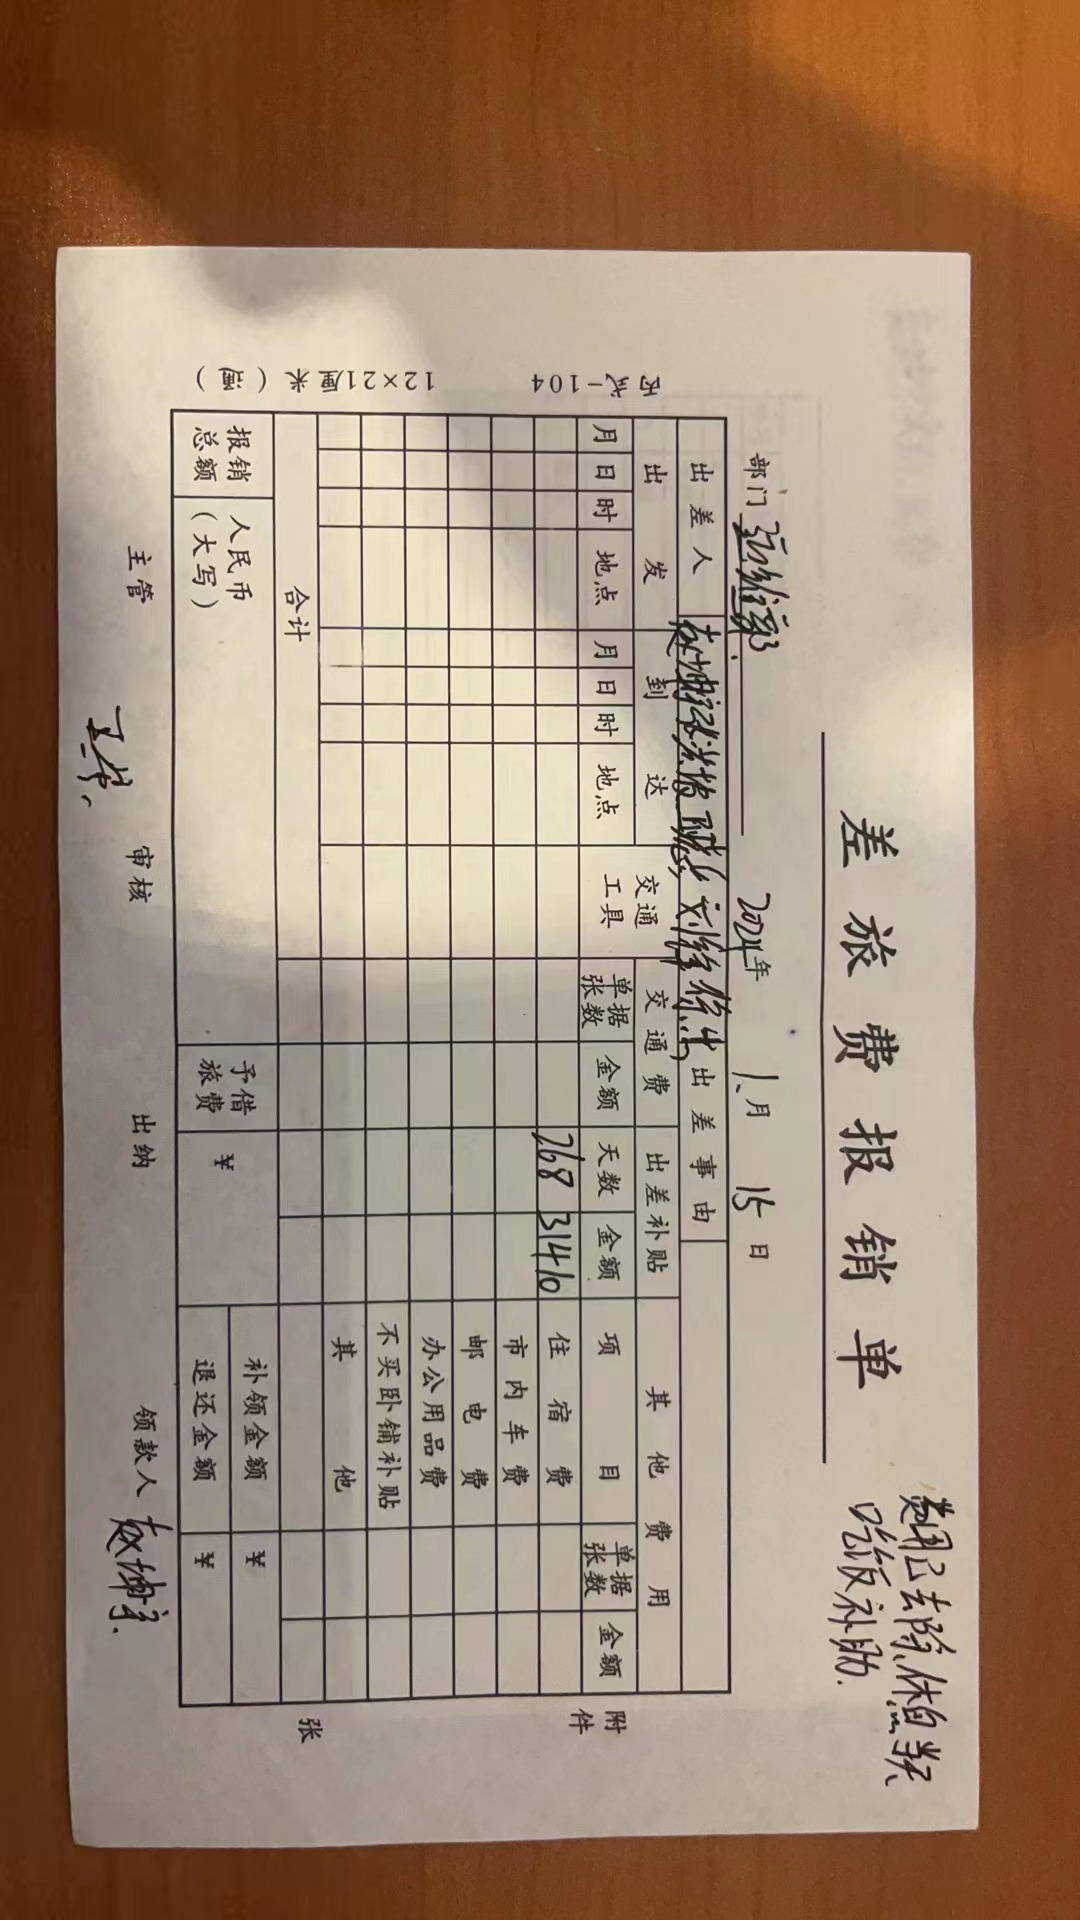 差旅费报销单
费用已去除休息日
吃饭补助.
部门 运维部 2024年 1月 15日
出差人 出差事由
出发 到达 交通工具 交通费 出差补贴 其他费用
月 日 时 地点 月 日 时 地点 单据张数 金额 天数 金额 项目 单据张数 金额
268 31410 住宿费
市内车费
邮电费
办公用品费
不买卧铺补贴
其他
合计
报销总额 人民币(大写) 予借旅费 ¥ 补领金额 ¥
退还金额 ¥
主管 审核 出纳 领款人
附件 张
丙式-104 12×21厘米